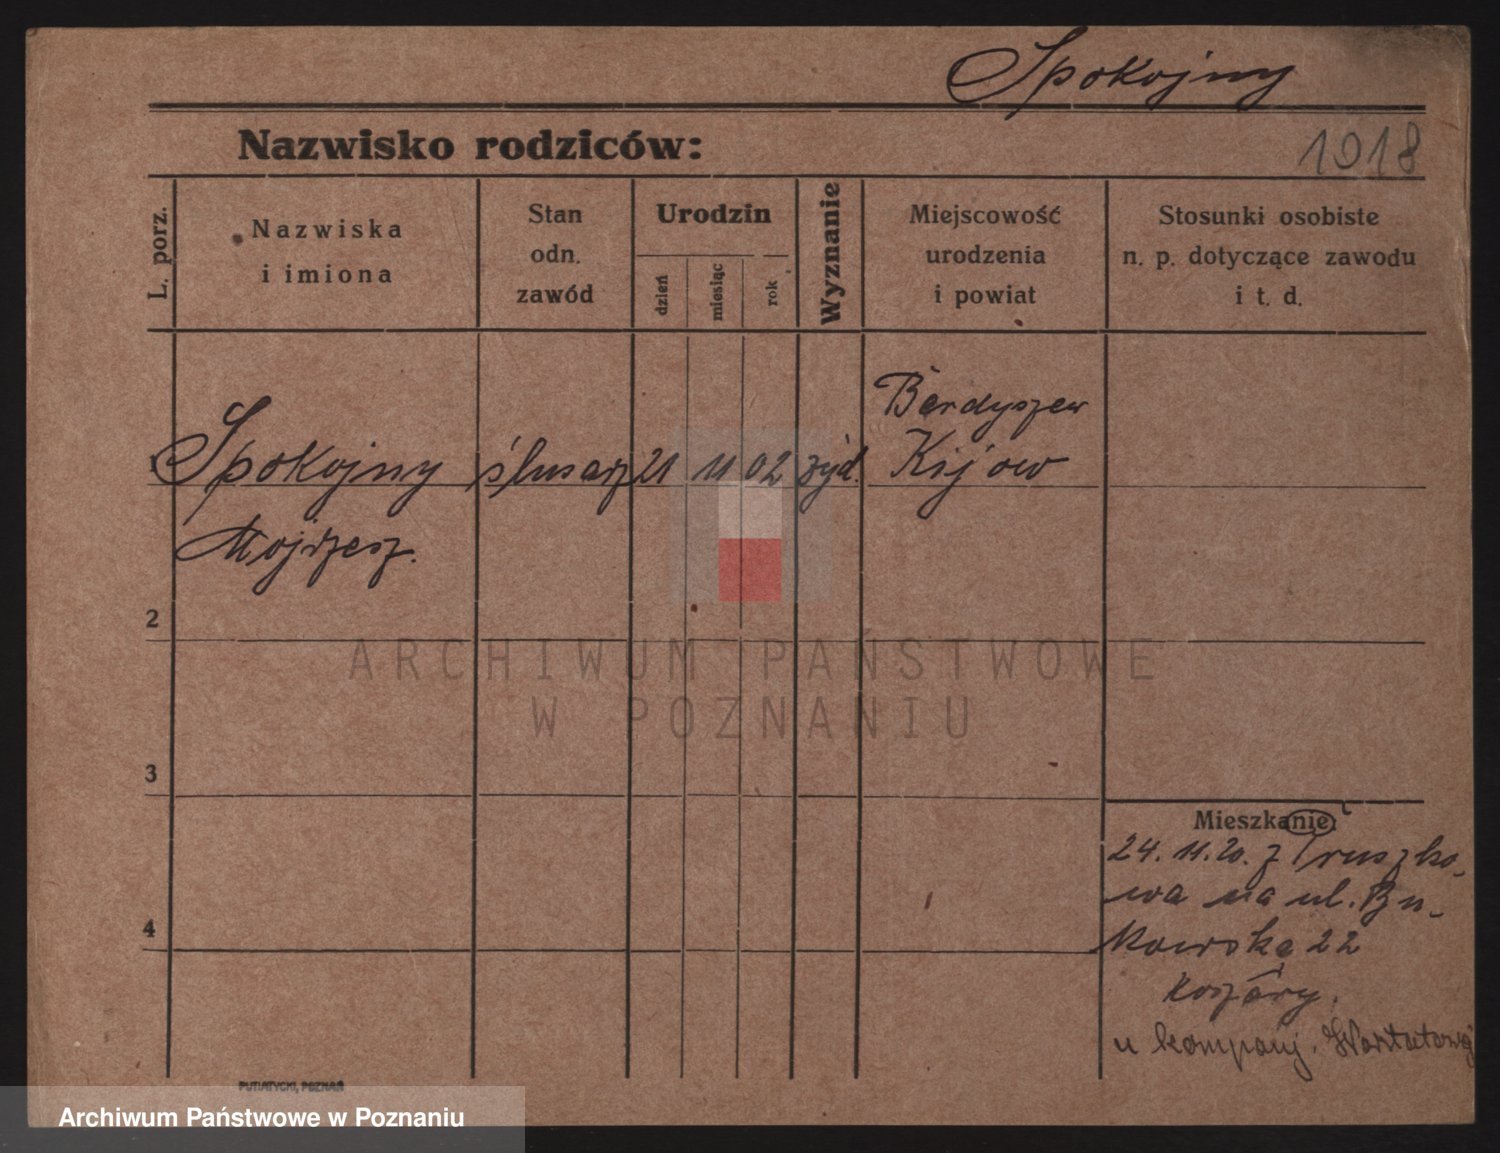 Spokojny
Nazwisko rodziców:
1918
L. porz.
Nazwiska
i imiona
Stan
odn.
zawód
Urodzin
dzień
miesiąc
rok
Wyznanie
Miejscowość
urodzenia
i powiat
Stosunki osobiste
n. p. dotyczące zawodu
i t. d.
Berdyszew
1 Spokojny ślusarz 21 11 02 żyd. Kijow
Mojżesz.
2
ARCHIWUM PAŃSTWOWE
W POZNANIU
3
Mieszkanie:
24. 11. 20. z Pruszko-
wa na ul. Bu-
kowską 22
4
koszary.
u kompanj. Warstatowej
PUTIATYCKI, POZNAŃ
Archiwum Państwowe w Poznaniu